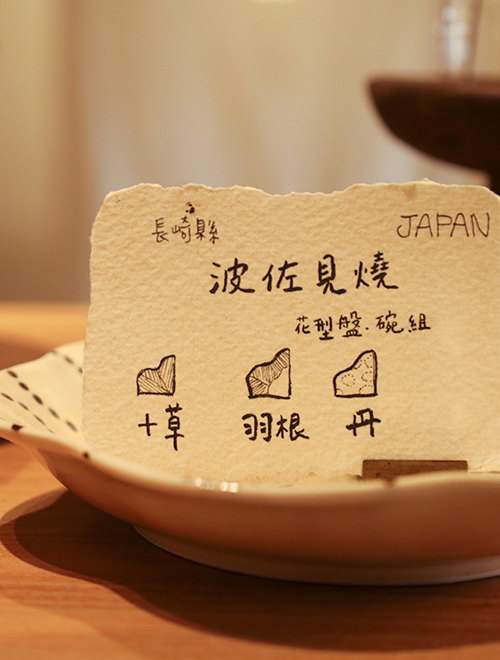 長崎縣 JAPAN
波佐見燒
花型盤.碗組
十草 羽根 丹